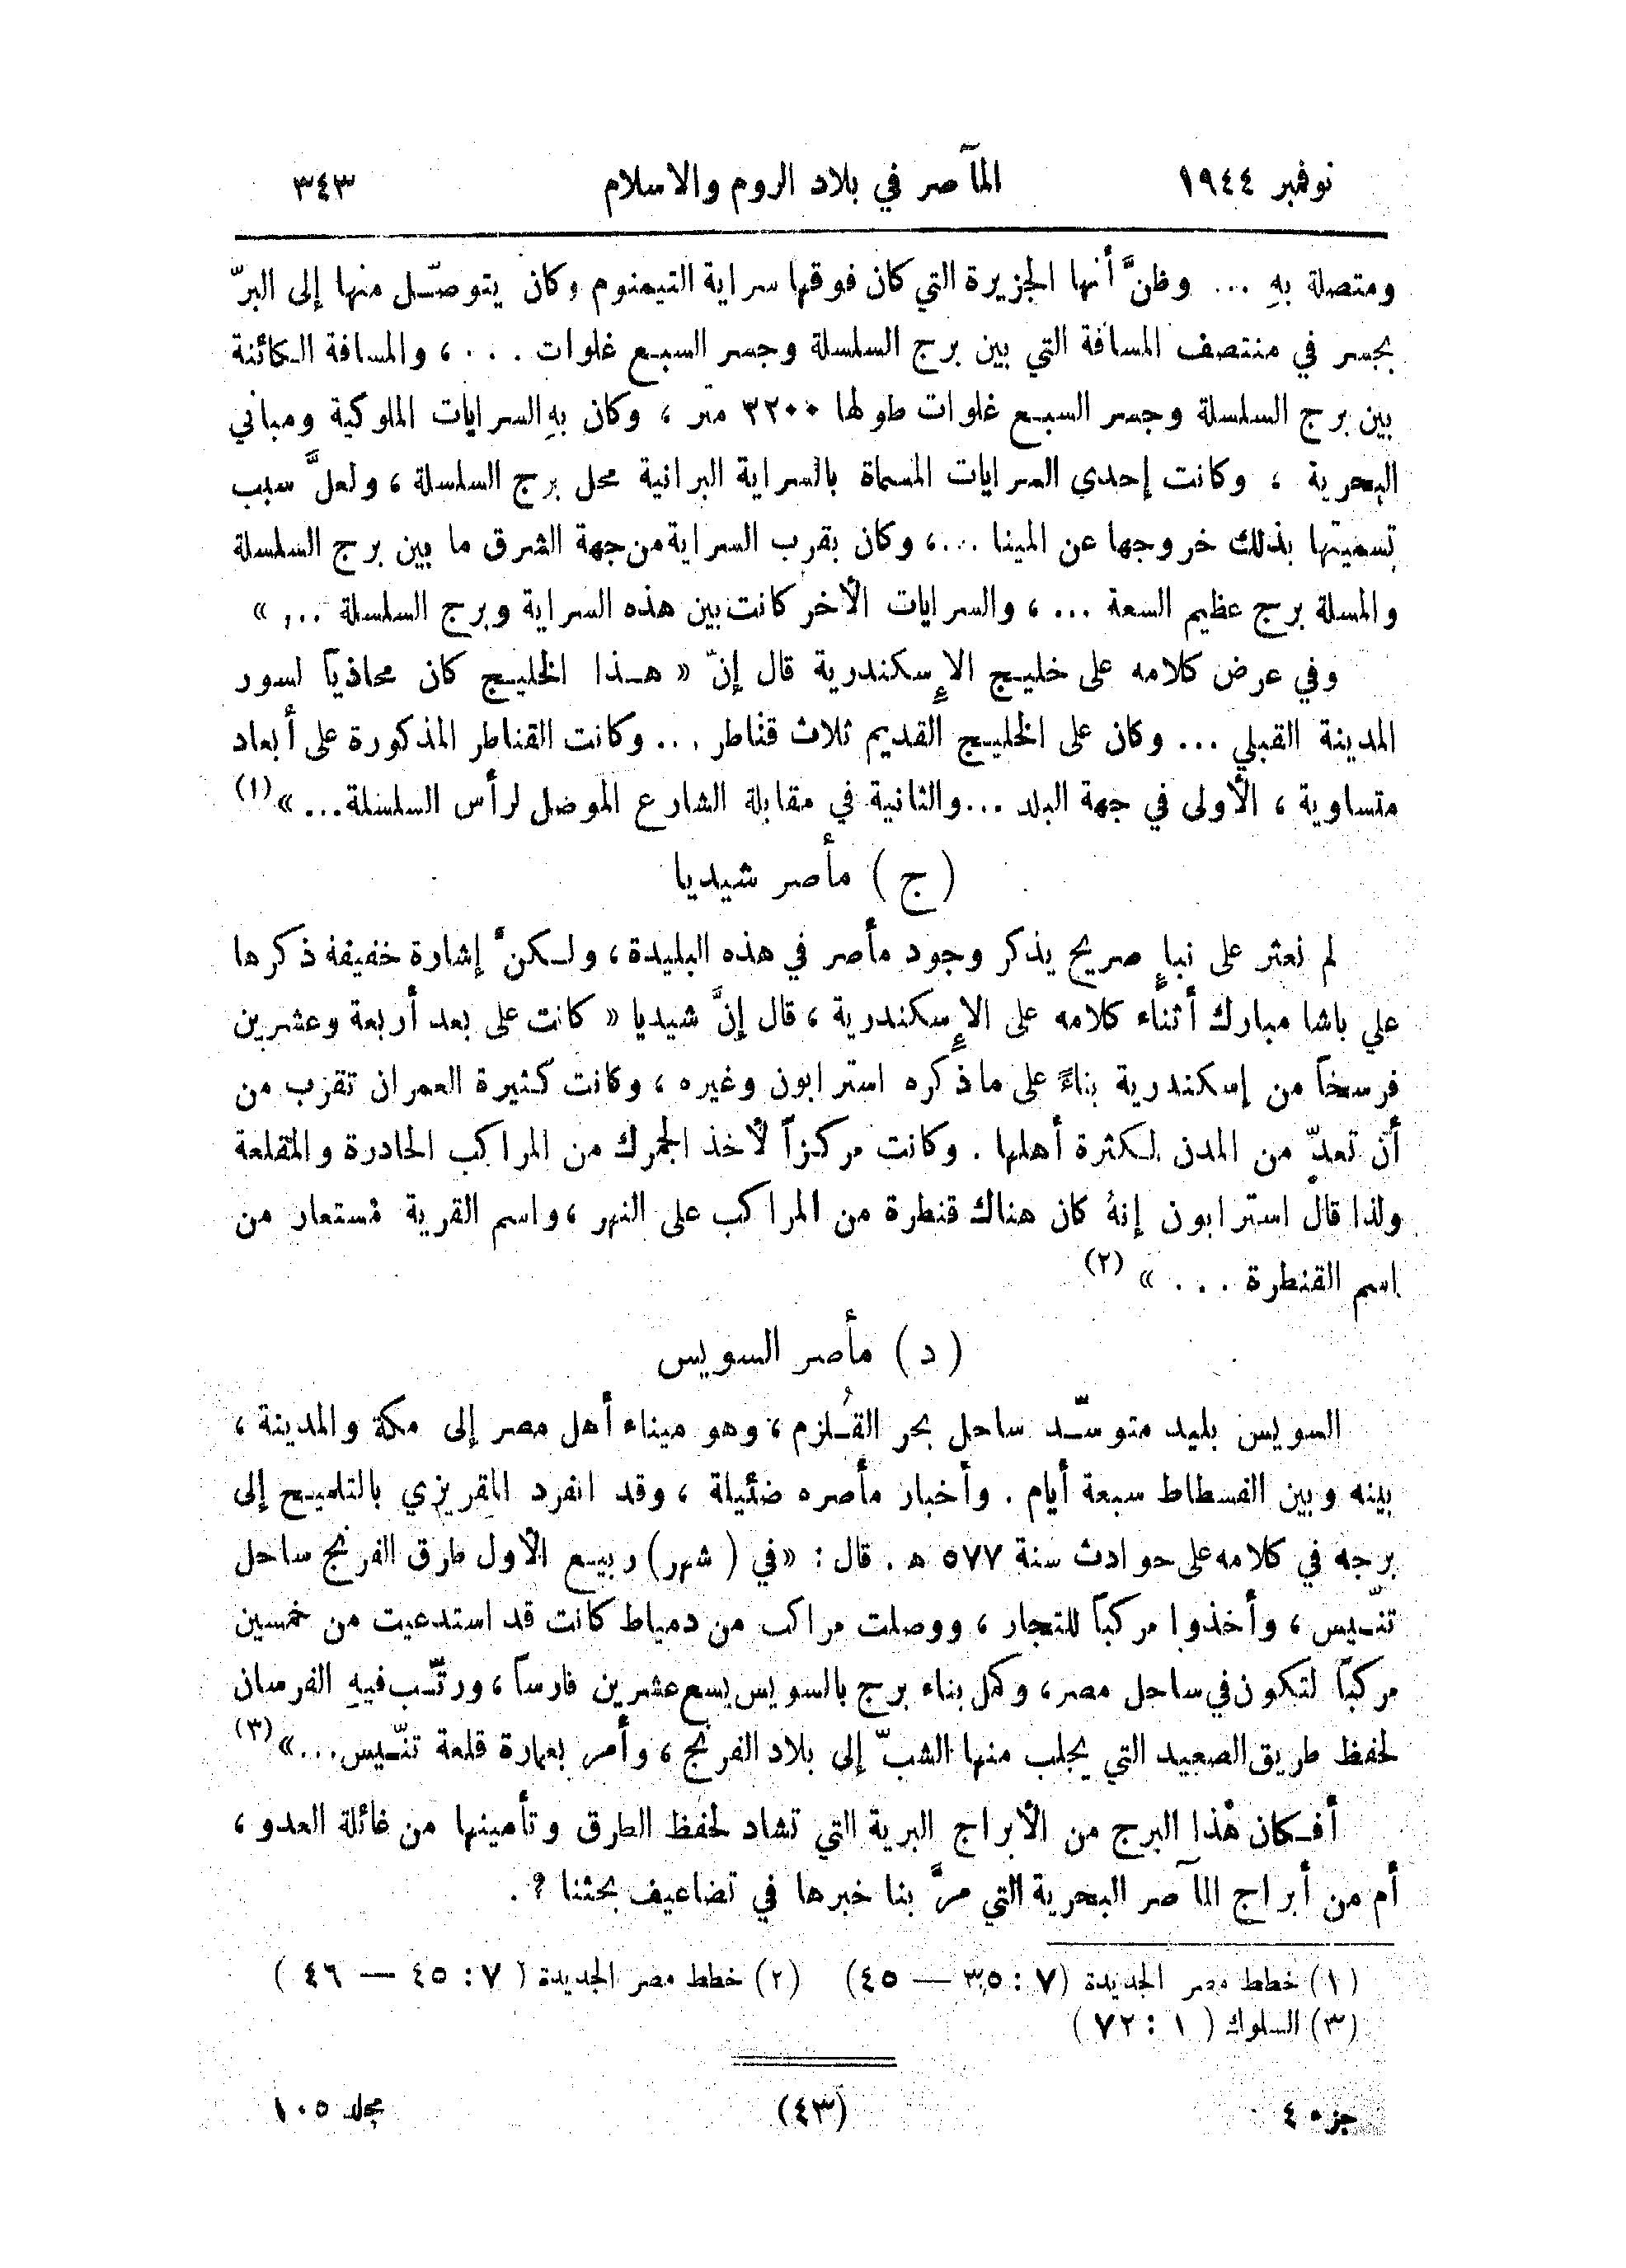 نوفمبر ١٩٤٤ المآصر في بلاد الروم والاسلام ٣٤٣
ومتصلة بهِ ... وظنَّ أنها الجزيرة التي كان فوقها سراية التيمنوم وكان يتوصّل منها إلى البرّ
بجسر في منتصف المسافة التي بين برج السلسلة وجسر السبع غلوات ... ، والمسافة الكائنة
بين برج السلسلة وجسر السبع غلوات طولها ٣٢٠٠ متر ، وكان بهِ السرايات الملوكية ومباني
البحرية ، وكانت إحدى السرايات المسماة بالسراية البرانية محل برج السلسلة ، ولعلَّ سبب
تسميتها بذلك خروجها عن المينا ...، وكان بقرب السراية من جهة الشرق ما بين برج السلسلة
والمسلة برج عظيم السعة ... ، والسرايات الأخر كانت بين هذه السراية وبرج السلسلة ... »
وفي عرض كلامه على خليج الإسكندرية قال إنّ « هذا الخليج كان محاذياً لسور
المدينة القبلي ... وكان على الخليج القديم ثلاث قناطر ... وكانت القناطر المذكورة على أبعاد
متساوية ، الأولى في جهة البلد ... والثانية في مقابلة الشارع الموصل لرأس السلسلة... » (١)
( ج ) مأصر شيديا
لم نعثر على نبإٍ صريح يذكر وجود مأصر في هذه البليدة ، ولكنَّ إشارة خفيفة ذكرها
علي باشا مبارك أثناء كلامه على الإسكندرية ، قال إنَّ شيديا « كانت على بعد أربعة وعشرين
فرسخاً من إسكندرية بناءً على ما ذكره استرابون وغيره ، وكانت كثيرة العمران تقرب من
أن تعدّ من المدن لكثرة أهلها . وكانت مركزاً لأخذ الجمرك من المراكب الحادرة والمقلعة
ولذا قال استرابون إنهُ كان هناك قنطرة من المراكب على النهر ، واسم القرية مستعار من
اسم القنطرة ... » (٢)
( د ) مأصر السويس
السويس بليد متوسّد ساحل بحر القُلزم ، وهو ميناء أهل مصر إلى مكة والمدينة ،
بينه وبين الفسطاط سبعة أيام . وأخبار مأصره ضئيلة ، وقد انفرد المقريزي بالتلميح إلى
برجه في كلامه على حوادث سنة ٥٧٧ ه . قال : « في ( شهر ) ربيع الأول طرق الفرنج ساحل
تنّيس ، وأخذوا مركباً للتجار ، ووصلت مراكب من دمياط كانت قد استدعيت من خمسين
مركباً لتكون في ساحل مصر ، وكمل بناء برج بالسويس يسع عشرين فارساً ، ورتّب فيهِ الفرسان
لحفظ طريق الصعيد التي يجلب منها الشبّ إلى بلاد الفرنج ، وأمر بعمارة قلعة تنّيس... » (٣)
أفكان هذا البرج من الأبراج البرية التي تشاد لحفظ الطرق وتأمينها من غائلة العدو ،
أم من أبراج المآصر البحرية التي مرَّ بنا خبرها في تضاعيف بحثنا ؟ .
(١) خطط مصر الجديدة (٧ : ٣٥ — ٤٥) (٢) خطط مصر الجديدة ( ٧ : ٤٥ — ٤٦ )
(٣) السلوك ( ١ : ٧٢ )
جزء ٤ (٤٣) مجلد ١٠٥